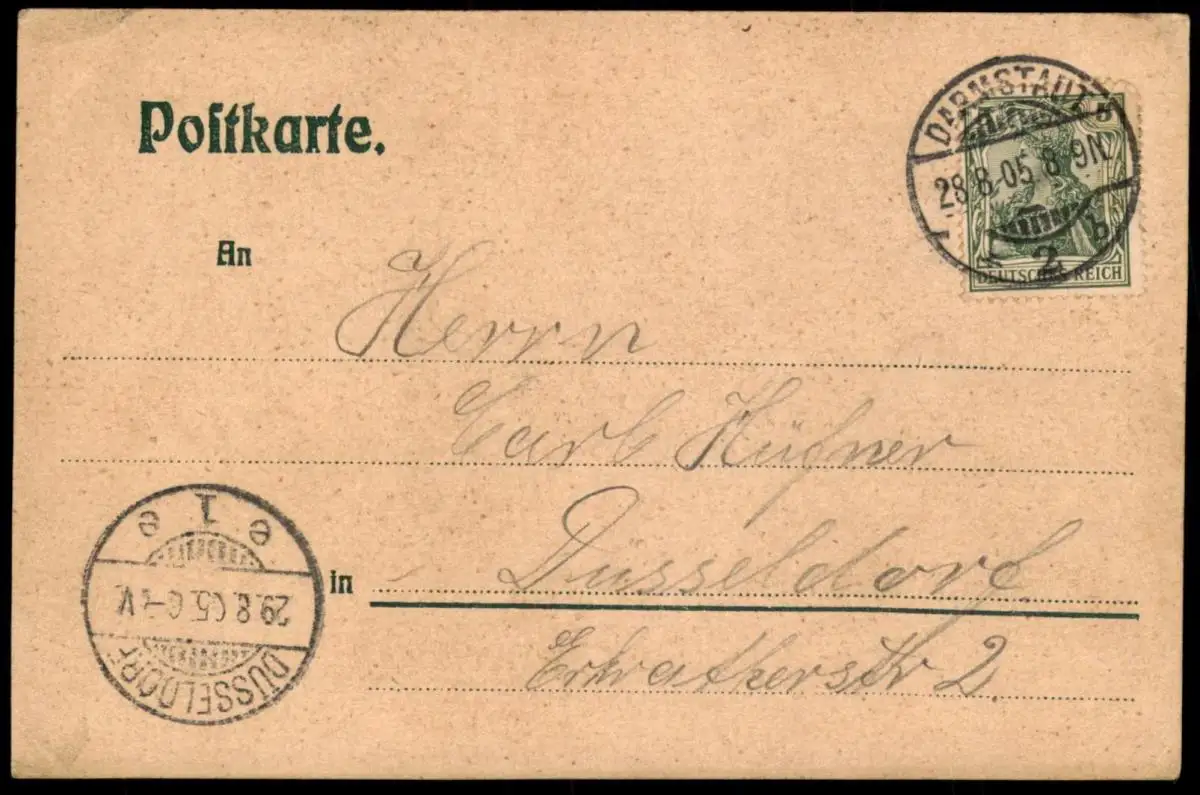 Postkarte.
DARMSTADT
28.8.05 8-9N.
2 b
DEUTSCHES REICH
An
Herrn
Carl Hüfner
in Düsseldorf
Erkratherstr 2
e 1 e
29.8.05
DÜSSELDORF